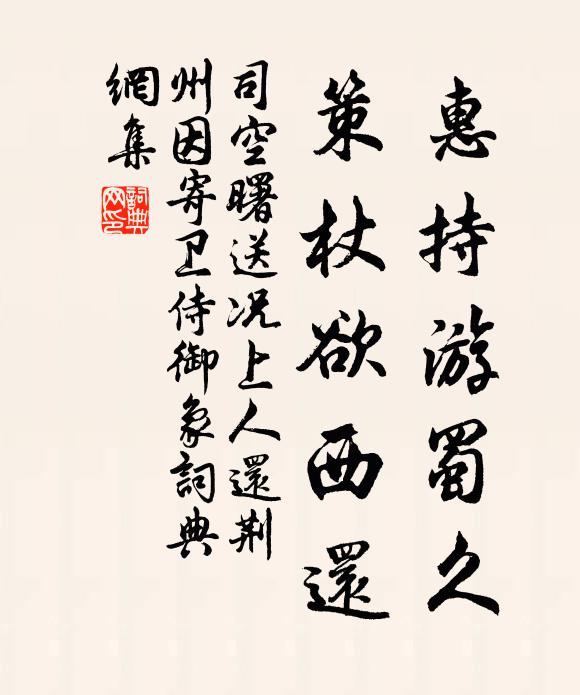 惠持游蜀久
策杖欲西還
司空曙送况上人還荆
州因寄卫侍御象詞典
網集
詞典網印